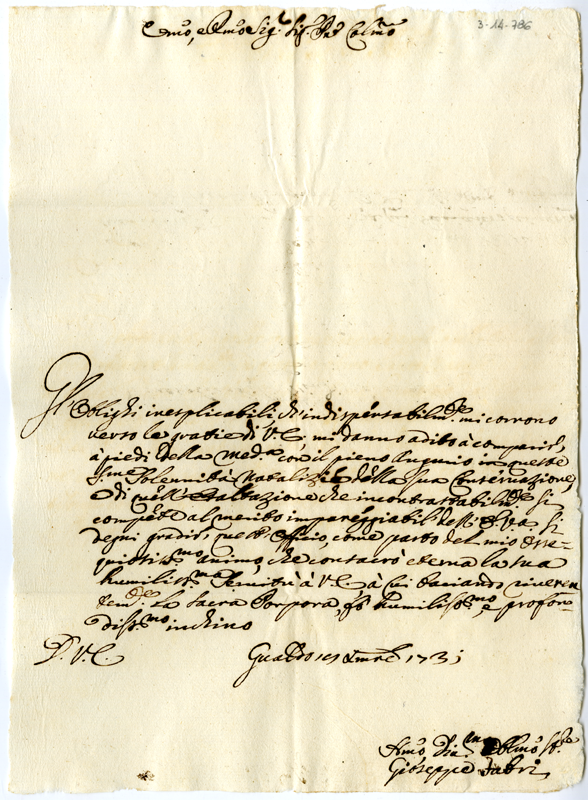 Emo, e Rmo Sig.r Sig. Pad Colmo
3-14-786
Gl'Oblighi inesplicabili, ch'indispensabilm.te mi corrono
verso le gratie di V. E. mi danno adito à comparir,
à piedi della med.a con il pieno Augurio in queste
S.me Solennità Natalizie della sua Conservazione,
e di quell'Esaltazione che incontrastabilm.te si
compete al merito impareggiabil dell'E. Va. Si
degni gradir, quest'officio, come parto del mio osse-
quiosiss.mo animo, che consacrò eterna la sua
humiliss.ma servitù à V. E. à cui baciando riveren
tem.te la Sacra Porpora, humiliss.mo, e profon-
diss.mo inchino
D. V. E.
Gualdo Xmbre 1731
Humo Dia.mo Oblmo
Gioseppe Fabri